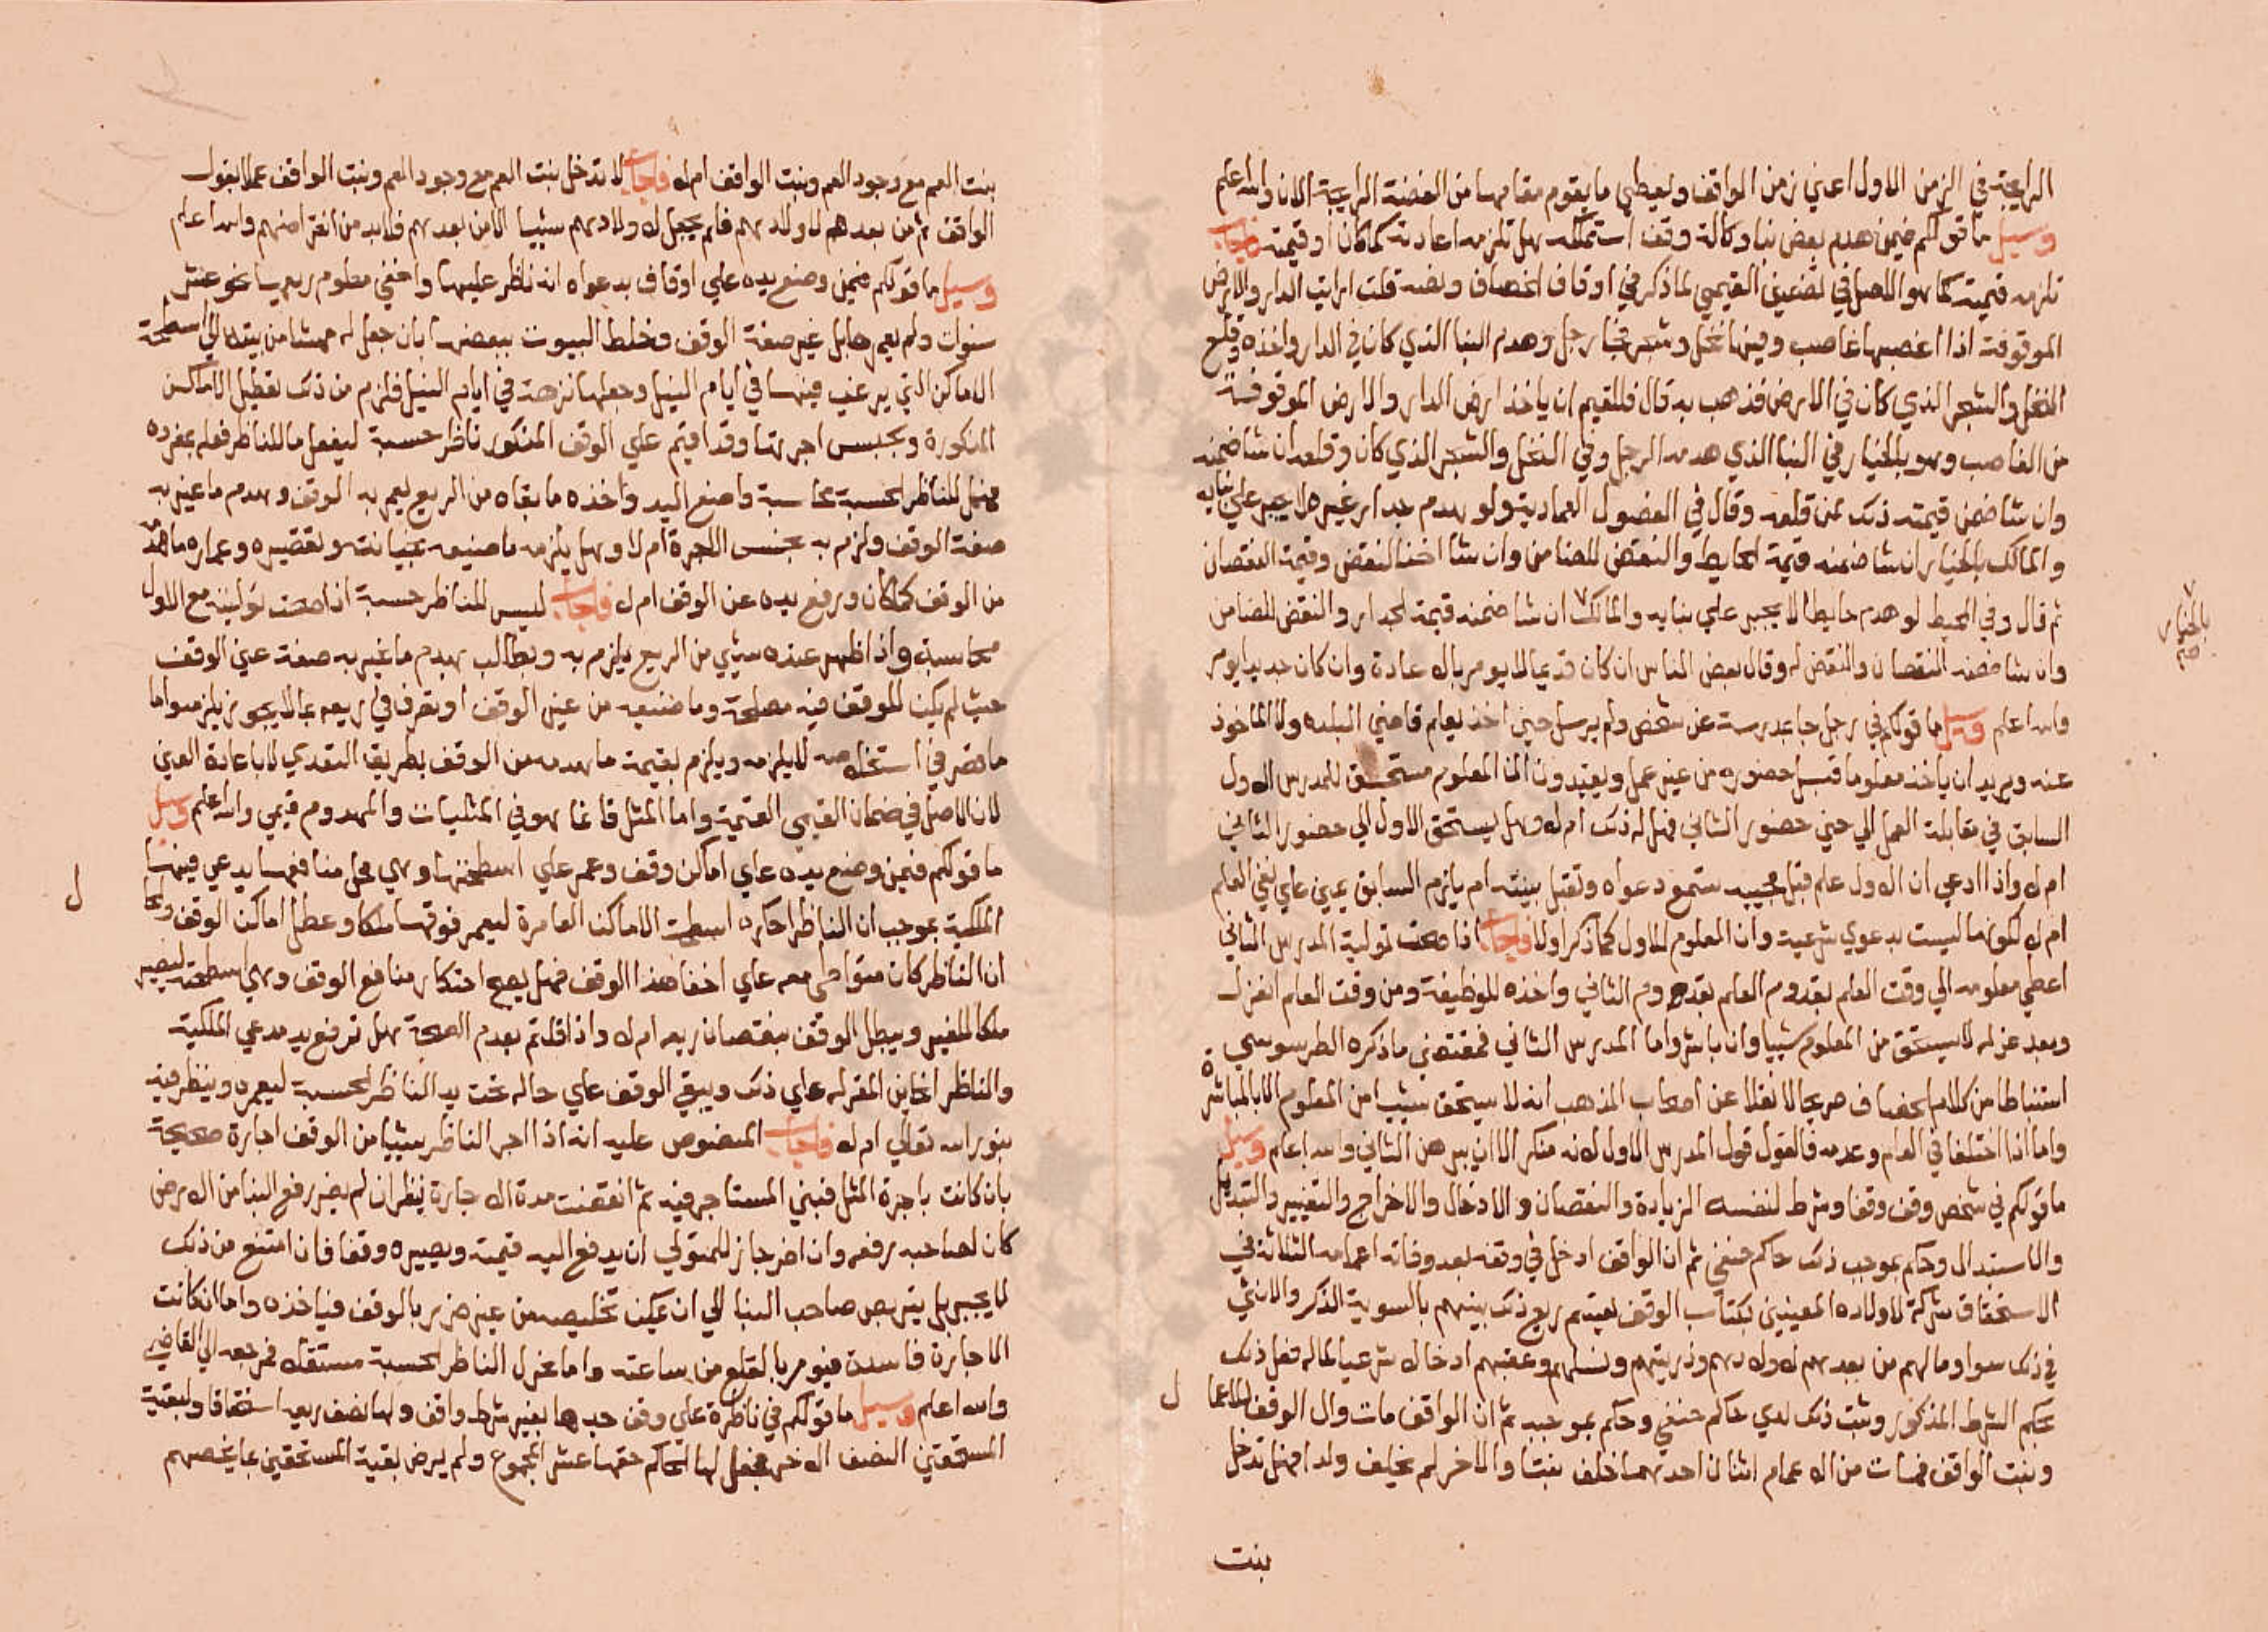 الرايجة في الزمن الاول اعني زمن الواقف ويعطي ما يقوم مقامها من الفضة الرايجة الان والله اعلم
وسيل ما قولكم فيمن هدم بعض بنا وكالة وقف استملكه هل تلزمه اعادته كما كان او قيمته فاجاب
تلزمه قيمته كما هو الاصل في تضمين القيمي لما ذكر في اوقاف الخصاف ونصه قلت ارايت الدار والارض
الموقوفة اذا اغصبها غاصب وفيها نخل وشجر فجا رجل وهدم البنا الذي كان في الدار واخذه وقلع
النخل والشجر الذي كان في الارض فذهب به قال فللقيم ان ياخذ ارض الدار والارض الموقوفة
من الغاصب وهو بالخيار في البنا الذي هدمه الرجل وفي النخل والشجر الذي كان وقلعه ان شا ضمنه
وان شا ضمن قيمته ذلك لمن قلعه وقال في الفصول العمادية ولو هدم جدار غيره لا يجبر علي بنايه
والمالك بالخيار ان شا ضمنه قيمة الحايط والنقض للضامن وان شا اخذ النقض وقيمة النقصان
ثم قال وفي المحيط لو هدم حايطا لا يجبر علي بنايه والمالك ان شا ضمنه قيمة الجدار والنقض للضامن
بالخيار صح
وان شا ضمنه النقصان والنقض له وقال بعض الناس ان كان قديما لا يومر بالاعادة وان كان حديثا يومر
والله اعلم وسيل ما قولكم في رجل جا بمدرسة عن شخص ولم يرسل حين اخذ يعلم قاضي البلده ولا الماخوذ
عنه ويريد ان ياخذ معلوما قبل حضوره من غير عمل ويعتدون ان المعلوم مستحق للمدرس الاول
السابق في مقابلة العمل الي حين حضور الثاني فهل له ذلك ام لا وهل يستحق الاول الي حضور الثاني
ام لا واذا ادعي ان الاول علم قبل مجيبه ستمع دعواه وتقبل بينته ام يلزم السابق يمين علي نفي العلم
ام لا لكونها ليست بدعوي شرعية وان المعلوم للاول كما ذكر اولا فاجاب اذا صحت تولية المدرس الثاني
اعطي معلومه الي وقت العلم بقدوم العلم بقدوم الثاني واخذه للوظيفة ومن وقت العلم انعزل
وبعد عزله لا يستحق من المعلوم شيا وان باشر واما المدرس الثاني فمقتضي ما ذكره الطرسوسي
استنباطا من كلام الخصاف صريحا لا نقلا عن اصحاب المذهب انه لا يستحق شييا من المعلوم الا بالمباشرة
واما اذا اختلفا في العلم وعدمه فالقول قول المدرس الاول لانه منكر الا ان يبرهن الثاني والله اعلم وسيل
ما قولكم في شخص وقف وقفا وشرط لنفسه الزيادة والنقصان والادخال والاخراج والتغيير والتبديل
والاستبدال وحكم بموجب ذلك حاكم حنفي ثم ان الواقف ادخل في وقفه بعد وفاته اعمامه الثلاثة في
الاستحقاق شركة لاولاده المعينين بكتاب الوقف يقتسم ريع ذلك بينهم بالسوية الذكر والانثي
في ذلك سوا وما لهم من بعدهم لاولادهم وذريتهم ونسلهم وعقبهم ادخالا شرعيا لماله فعل ذلك
بحكم الشرط المذكور وثبت ذلك لدي حاكم حنفي وحكم بموجبه ثم ان الواقف مات وال الوقف للاعمام
وبنت الواقف فمات من الاعمام اثنان احدهما خلف بنتا والاخر لم يخلف ولدا فهل تدخل
بنت
بنت العم مع وجود العم وبنت الواقف ام لا فاجاب لا تدخل بنت العم مع وجود العم وبنت الواقف عملا بقول
الواقف ثم من بعدهم لاولادهم فلم يجعل لاولادهم شييا الا من بعدهم فلابد من انقراضهم والله اعلم
وسيل ما قولكم فيمن وضع يده علي اوقاف بدعواه انه ناظر عليها واخفي معلوم ريعها نحو عشر
سنوات ولم يعمرها بل غير صفة الوقف وخلط البيوت ببعضها بان جعل له ممشا من بيته الي اسطحة
الاماكن التي يرغب فيها في ايام النيل وجعلها نزهة في ايام النيل فلزم من ذلك تعطيل الاماكن
المذكورة وبحبس اجرتها وقد اقيم علي الوقف المذكور ناظر حسبة ليفعل ما للناظر فعله بمفرده
فهل للناظر الحسبة محاسبة واضع اليد واخذه ما بقاه من الريع ليعمر به الوقف وهدم ما غير به
صفة الوقف ولزم به بحبس الاجرة ام لا وهل يلزمه ما ضيعه بخيانته وتقصيره وعماره ما هدم
من الوقف كما كان ورفع يده عن الوقف ام لا فاجاب ليس للناظر حسبة اذا صحت توليته مع الاول
محاسبة واذا ظهر عنده شيي من الريع يلزم به ويطالب بهدم ما غير به صفة عين الوقف
حيث لم يكن للوقف فيه مصلحة وما ضيعه من عين الوقف او تصرف في ريعه بما لا يجوز يلزمه واما
ما قصر في استغلاله لا يلزمه ويلزم بقيمة ما هدمه من الوقف بطريق التعدي لا باعادة العين
لان الاصل في ضمان القيمي القيمة واما المثل فانما هو في المثليات والمهدوم قيمي والله اعلم وسيل
ما قولكم فيمن وضع يده علي اماكن وقف وعمر علي اسطحتها وهي محل منافعها يدعي فيها
الملكية بموجب ان الناظر احكره اسطحة الاماكن العامرة ليعمر فوقها ملكا وعطل اماكن الوقف
ان الناظر كان متواطي معه علي اخفا هذا الوقف فهل يصح احتكار منافع الوقف وهي اسطحته ليصير
ملكا للغير ويبطل الوقف بنقصان ريعه ام لا واذا قلتم بعدم الصحة هل ترفع يد مدعي الملكية
والناظر الخاين المقر له علي ذلك ويبقي الوقف علي حاله تحت يد الناظر الحسبة ليعمره وينظر فيه
بنور الله تعالي ام لا فاجاب المنصوص عليه انه اذا اجر الناظر شييا من الوقف اجارة صحيحة
بان كانت باجرة المثل فبني المستاجر فيه ثم انقضت مدة الاجارة ينظر ان لم يضر رفع البنا من الارض
كان لصاحبه رفعه وان اضر جاز للمتولي ان يدفع اليه قيمته ويصيره وقفا فان امتنع من ذلك
لا يجبر بل يتربص صاحب البنا الي ان يمكن تخليصه من غير ضرر بالوقف فياخذه واما ان كانت
الاجارة فاسدة فيومر بالقلع من ساعته واما عزل الناظر الحسبة مستقلا فمرجعه الي القاضي
والله اعلم وسيل ما قولكم في ناظرة علي وقف جدها بغير شرط واقف ولها نصف ريعه استحقاقا ولبقية
المستحقين النصف الاخر فجعل لها الحاكم حقها عشر المجموع ولم يرض بقية المستحقين بما يخصهم